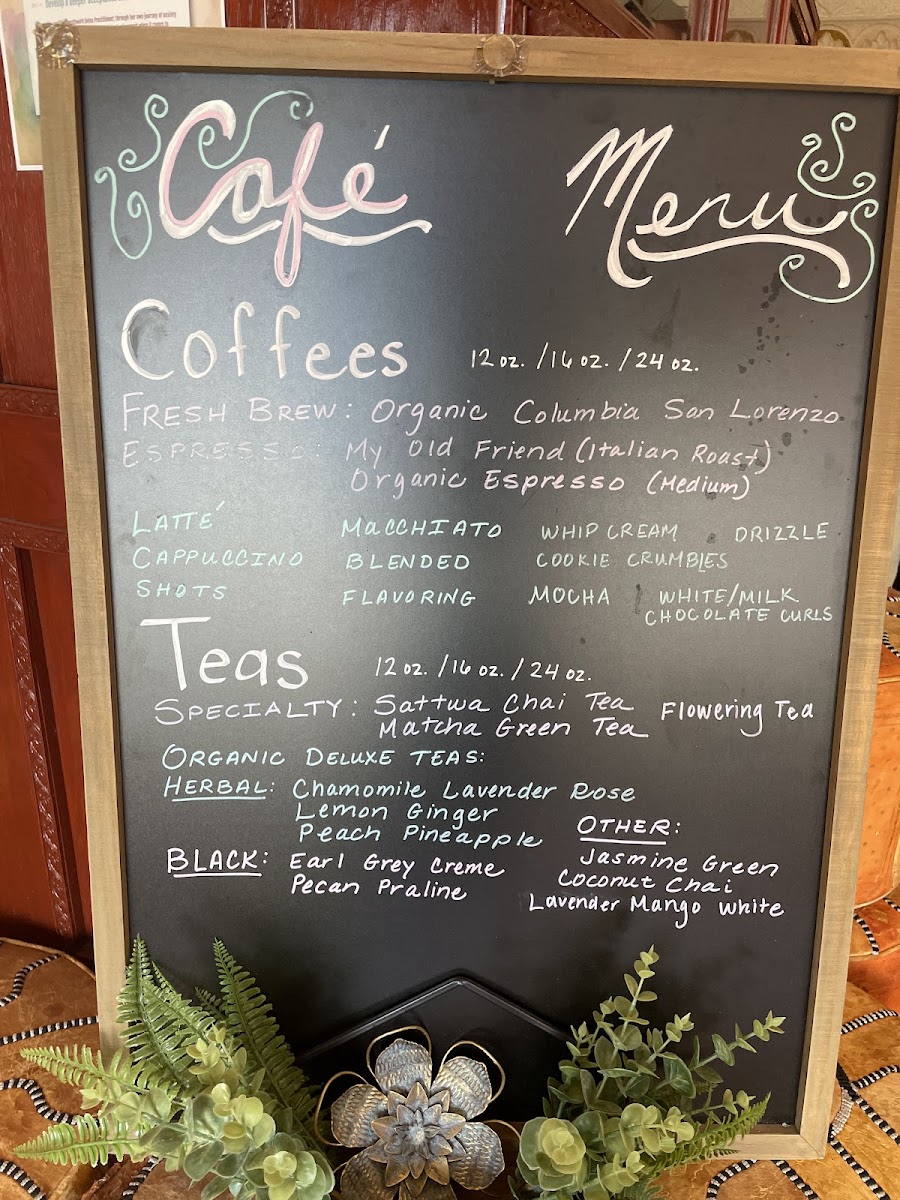 Café Menu
Coffees 12 oz. / 16 oz. / 24 oz.
FRESH BREW: Organic Columbia San Lorenzo
ESPRESSO: My Old Friend (Italian Roast)
Organic Espresso (Medium)
LATTÉ MACCHIATO WHIP CREAM DRIZZLE
CAPPUCCINO BLENDED COOKIE CRUMBLES
SHOTS FLAVORING MOCHA WHITE/MILK
CHOCOLATE CURLS
Teas 12 oz. / 16 oz. / 24 oz.
SPECIALTY: Sattwa Chai Tea Flowering Tea
Matcha Green Tea
ORGANIC DELUXE TEAS:
HERBAL: Chamomile Lavender Rose
Lemon Ginger
Peach Pineapple
BLACK: Earl Grey Creme
Pecan Praline
OTHER:
Jasmine Green
Coconut Chai
Lavender Mango White